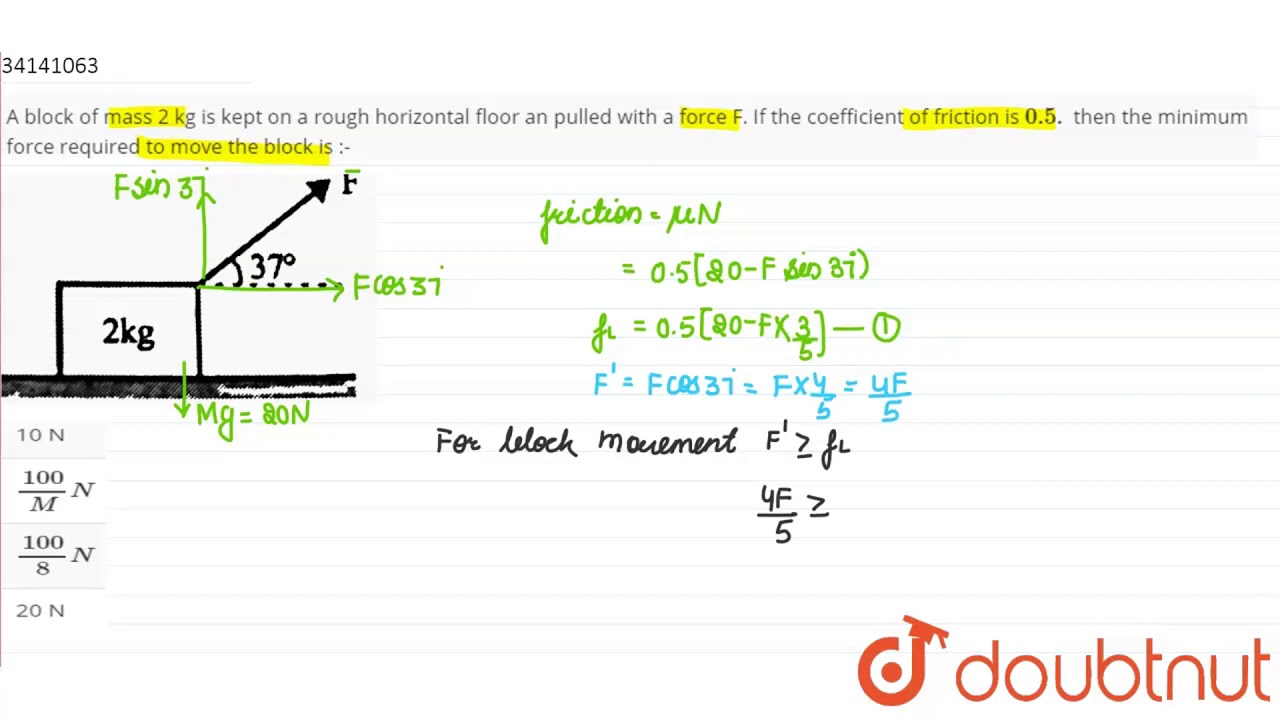 34141063
A block of mass 2 kg is kept on a rough horizontal floor an pulled with a force F. If the coefficient of friction is 0.5. then the minimum
force required to move the block is :-
Fsin37
F̄
37°
Fcos37
2kg
Mg=20N
friction = μN
= 0.5[20-F sin37)
fL = 0.5[20-F×3/5] — ①
F' = Fcos37 = F×4/5 = 4F/5
For block movement F' ≥ fL
4F/5 ≥
10 N
100/M N
100/8 N
20 N
doubtnut